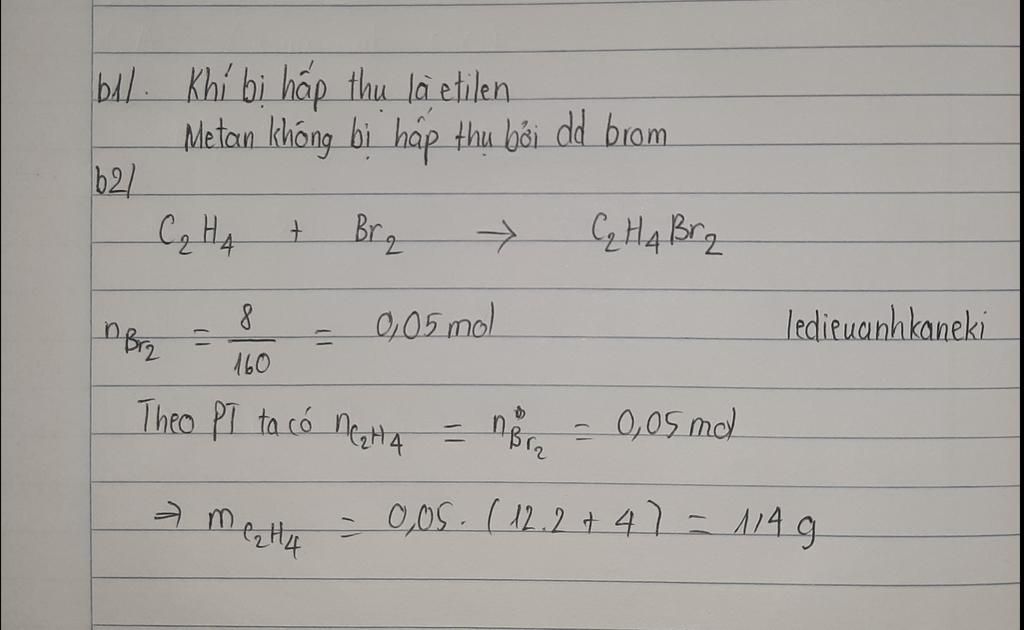 b1/. Khí bị hấp thụ là etilen
Metan không bị hấp thụ bởi dd brom
b2/
C₂H₄ + Br₂ → C₂H₄Br₂
n_Br₂ = 8/160 = 0,05 mol
ledieuanhkaneki
Theo PT ta có n_C₂H₄ = n_Br₂ = 0,05 mol
⇒ m_C₂H₄ = 0,05. (12.2 + 4) = 1,4 g